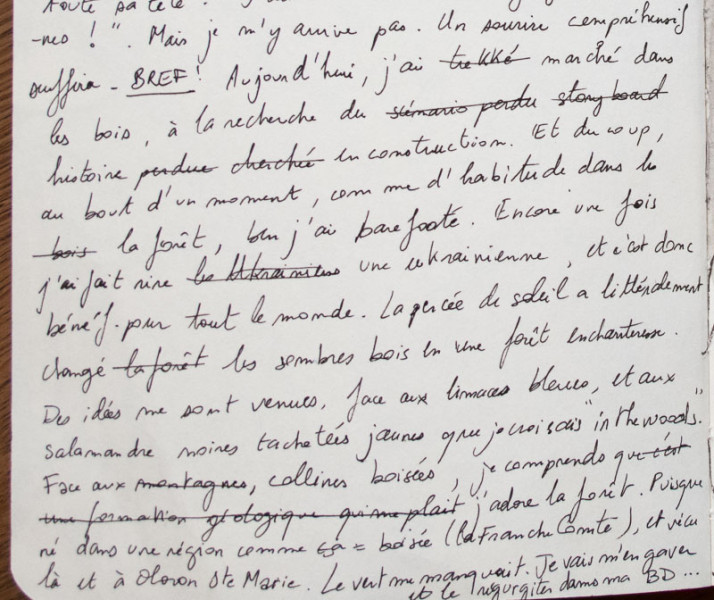 toute sa tête.
-nes !". Mais je m'y arrive pas. Un sourire compréhensif
suffira - BREF! Aujourd'hui, j'ai trekké marché dans
les bois, à la recherche du scénario perdu storyboard
histoire perdue cherchée en construction. Et du coup,
au bout d'un moment, comme d'habitude dans les
bois la forêt, ben j'ai barefooté. Encore une fois
j'ai fait rire les Ukrainiens une ukrainienne, et c'est donc
bénéf. pour tout le monde. La percée de soleil a littéralement
changé la forêt les sombres bois en une forêt enchanteresse.
Des idées me sont venues, face aux limaces bleues, et aux
salamandre noires tachetées jaunes que je croisais "in the woods".
Face aux montagnes, collines boisées, je comprends que c'est
une formation géologique qui me plait j'adore la forêt. Puisque
né dans une région comme ça = boisée (la Franche Comté), et vécu
là et à Oloron Ste Marie. Le vert me manquait. Je vais m'en gaver
et le régurgiter dans ma BD...